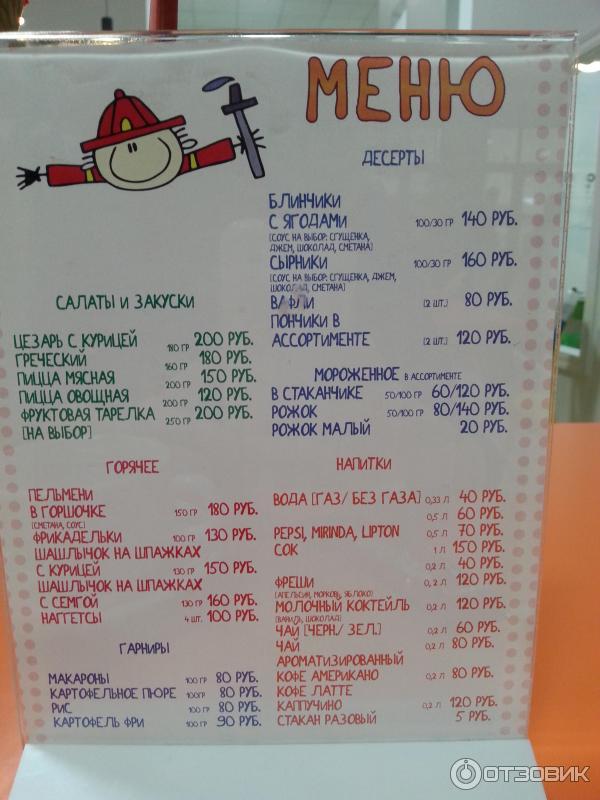 МЕНЮ
ДЕСЕРТЫ
БЛИНЧИКИ
С ЯГОДАМИ 100/30 ГР 140 РУБ.
[СОУС НА ВЫБОР: СГУЩЕНКА,
ДЖЕМ, ШОКОЛАД, СМЕТАНА]
СЫРНИКИ 100/30 ГР 160 РУБ.
[СОУС НА ВЫБОР: СГУЩЕНКА, ДЖЕМ,
ШОКОЛАД, СМЕТАНА]
ВАФЛИ [2 ШТ.] 80 РУБ.
ПОНЧИКИ В
АССОРТИМЕНТЕ [2 ШТ.] 120 РУБ.
МОРОЖЕННОЕ В АССОРТИМЕНТЕ
В СТАКАНЧИКЕ 50/100 ГР 60/120 РУБ.
РОЖОК 50/100 ГР 80/140 РУБ.
РОЖОК МАЛЫЙ 20 РУБ.
САЛАТЫ И ЗАКУСКИ
ЦЕЗАРЬ С КУРИЦЕЙ 180 ГР 200 РУБ.
ГРЕЧЕСКИЙ 160 ГР 180 РУБ.
ПИЦЦА МЯСНАЯ 200 ГР 150 РУБ.
ПИЦЦА ОВОЩНАЯ 200 ГР 120 РУБ.
ФРУКТОВАЯ ТАРЕЛКА 250 ГР 200 РУБ.
[НА ВЫБОР]
ГОРЯЧЕЕ
ПЕЛЬМЕНИ
В ГОРШОЧКЕ 150 ГР 180 РУБ.
[СМЕТАНА, СОУС]
ФРИКАДЕЛЬКИ 100 ГР 130 РУБ.
ШАШЛЫЧОК НА ШПАЖКАХ
С КУРИЦЕЙ 130 ГР 150 РУБ.
ШАШЛЫЧОК НА ШПАЖКАХ
С СЕМГОЙ 130 ГР 160 РУБ.
НАГГЕТСЫ 4 ШТ. 100 РУБ.
ГАРНИРЫ
МАКАРОНЫ 100 ГР 80 РУБ.
КАРТОФЕЛЬНОЕ ПЮРЕ 100ГР 80 РУБ.
РИС 100 ГР 80 РУБ.
КАРТОФЕЛЬ ФРИ 100 ГР 90 РУБ.
НАПИТКИ
ВОДА [ГАЗ/ БЕЗ ГАЗА] 0,33 Л 40 РУБ.
0,5 Л 60 РУБ.
PEPSI, MIRINDA, LIPTON 0,5 Л 70 РУБ.
СОК 1 Л 150 РУБ.
0,2 Л 40 РУБ.
ФРЕШИ 0,2 Л 120 РУБ.
[АПЕЛЬСИН, МОРКОВЬ, ЯБЛОКО]
МОЛОЧНЫЙ КОКТЕЙЛЬ 0,2 Л 120 РУБ.
[ВАНИЛЬ, ШОКОЛАД]
ЧАЙ [ЧЕРН./ ЗЕЛ.] 0,2 Л 60 РУБ.
ЧАЙ 0,2 Л 80 РУБ.
АРОМАТИЗИРОВАННЫЙ
КОФЕ АМЕРИКАНО 0,2 Л 80 РУБ.
КОФЕ ЛАТТЕ
КАППУЧИНО 0,2 Л 120 РУБ.
СТАКАН РАЗОВЫЙ 5 РУБ.
ОТЗОВИК